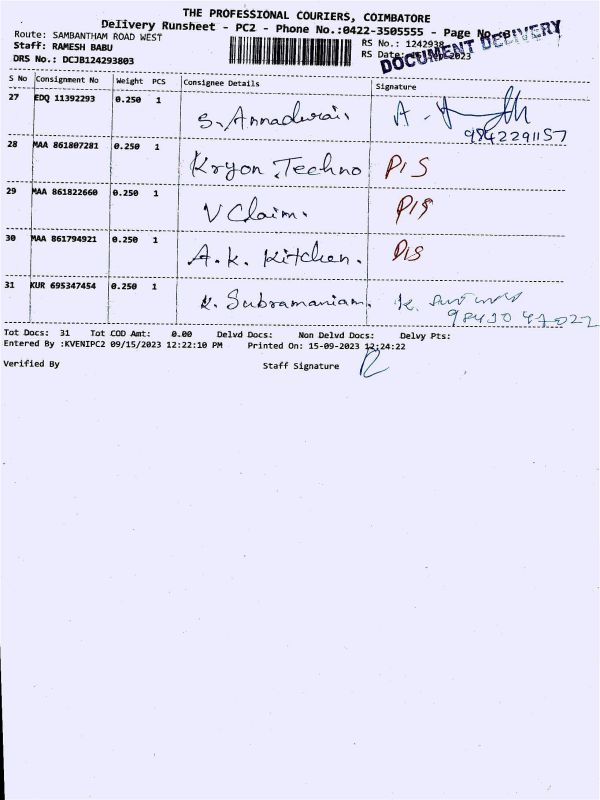 THE PROFESSIONAL COURIERS, COIMBATORE
Delivery Runsheet - PC2 - Phone No.:0422-3505555 - Page No.
DOCUMENT DELIVERY
Route: SAMBANTHAM ROAD WEST
RS No.: 1242938
Staff: RAMESH BABU
RS Date: 2023
DRS No.: DCJB124293803
S No Consignment No Weight PCS Consignee Details Signature
27 EDQ 11392293 0.250 1 S. Annadurai.
9842291157
28 MAA 861807281 0.250 1 Kryon Techno P/S
29 MAA 861822660 0.250 1 V Claim. P/S
30 MAA 861794921 0.250 1 A.K. Kitchen. P/S
31 KUR 695347454 0.250 1 K. Subramaniam. K.
98430 47022
Tot Docs: 31 Tot COD Amt: 0.00 Delvd Docs: Non Delvd Docs: Delvy Pts:
Entered By :KVENIPC2 09/15/2023 12:22:10 PM Printed On: 15-09-2023 12:24:22
Verified By Staff Signature